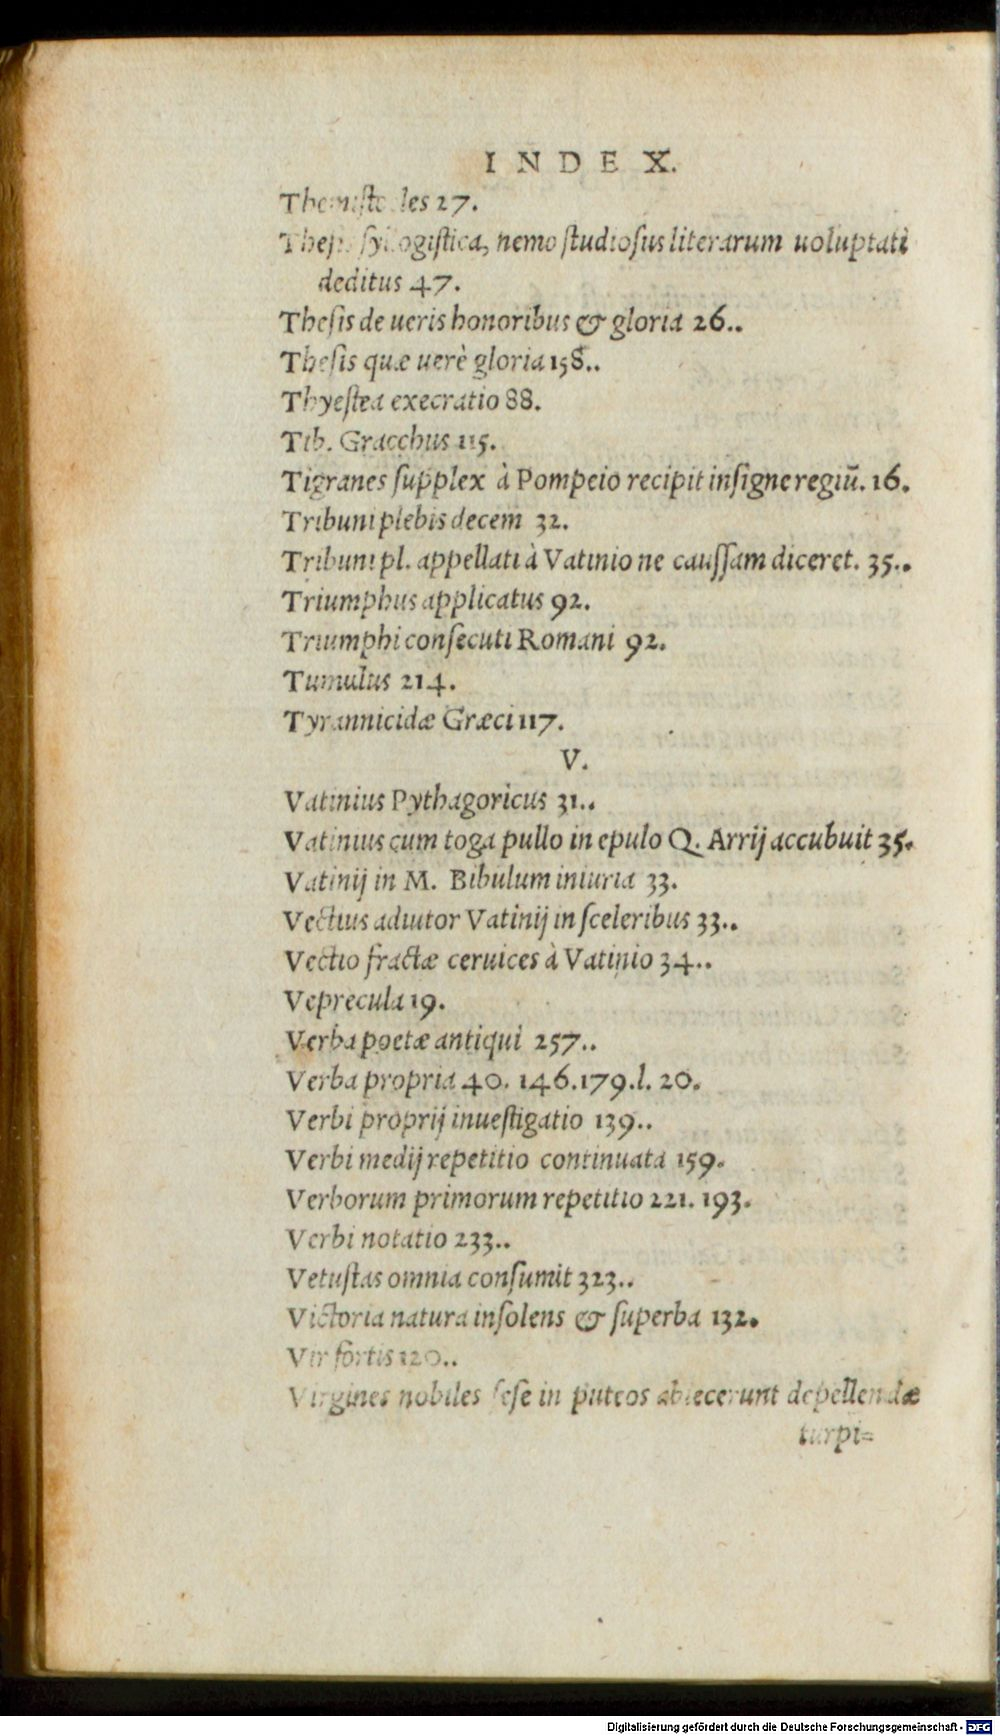 INDEX.
Themistocles 27.
Thesis syllogistica, nemo studiosus literarum uoluptati
deditus 47.
Thesis de ueris honoribus & gloria 26..
Thesis quæ uerè gloria 158..
Thyestea execratio 88.
Tib. Gracchus 115.
Tigranes supplex à Pompeio recipit insigne regiū. 16.
Tribuni plebis decem 32.
Tribuni pl. appellati à Vatinio ne caussam diceret. 35..
Triumphus applicatus 92.
Triumphi consecuti Romani 92.
Tumulus 214.
Tyrannicidæ Græci 117.
V.
Vatinius Pythagoricus 31..
Vatinius cum toga pullo in epulo Q. Arrij accubuit 35.
Vatinij in M. Bibulum iniuria 33.
Vectius adiutor Vatinij in sceleribus 33..
Vectio fractæ ceruices à Vatinio 34..
Veprecula 19.
Verba poetæ antiqui 257..
Verba propria 40. 146.179.l. 20.
Verbi proprij inuestigatio 139..
Verbi medij repetitio continuata 159.
Verborum primorum repetitio 221. 193.
Verbi notatio 233..
Vetustas omnia consumit 323..
Victoria natura insolens & superba 132.
Vir fortis 120..
Virgines nobiles sese in puteos abiecerunt depellendæ
turpi=
Digitalisierung gefördert durch die Deutsche Forschungsgemeinschaft - DFG